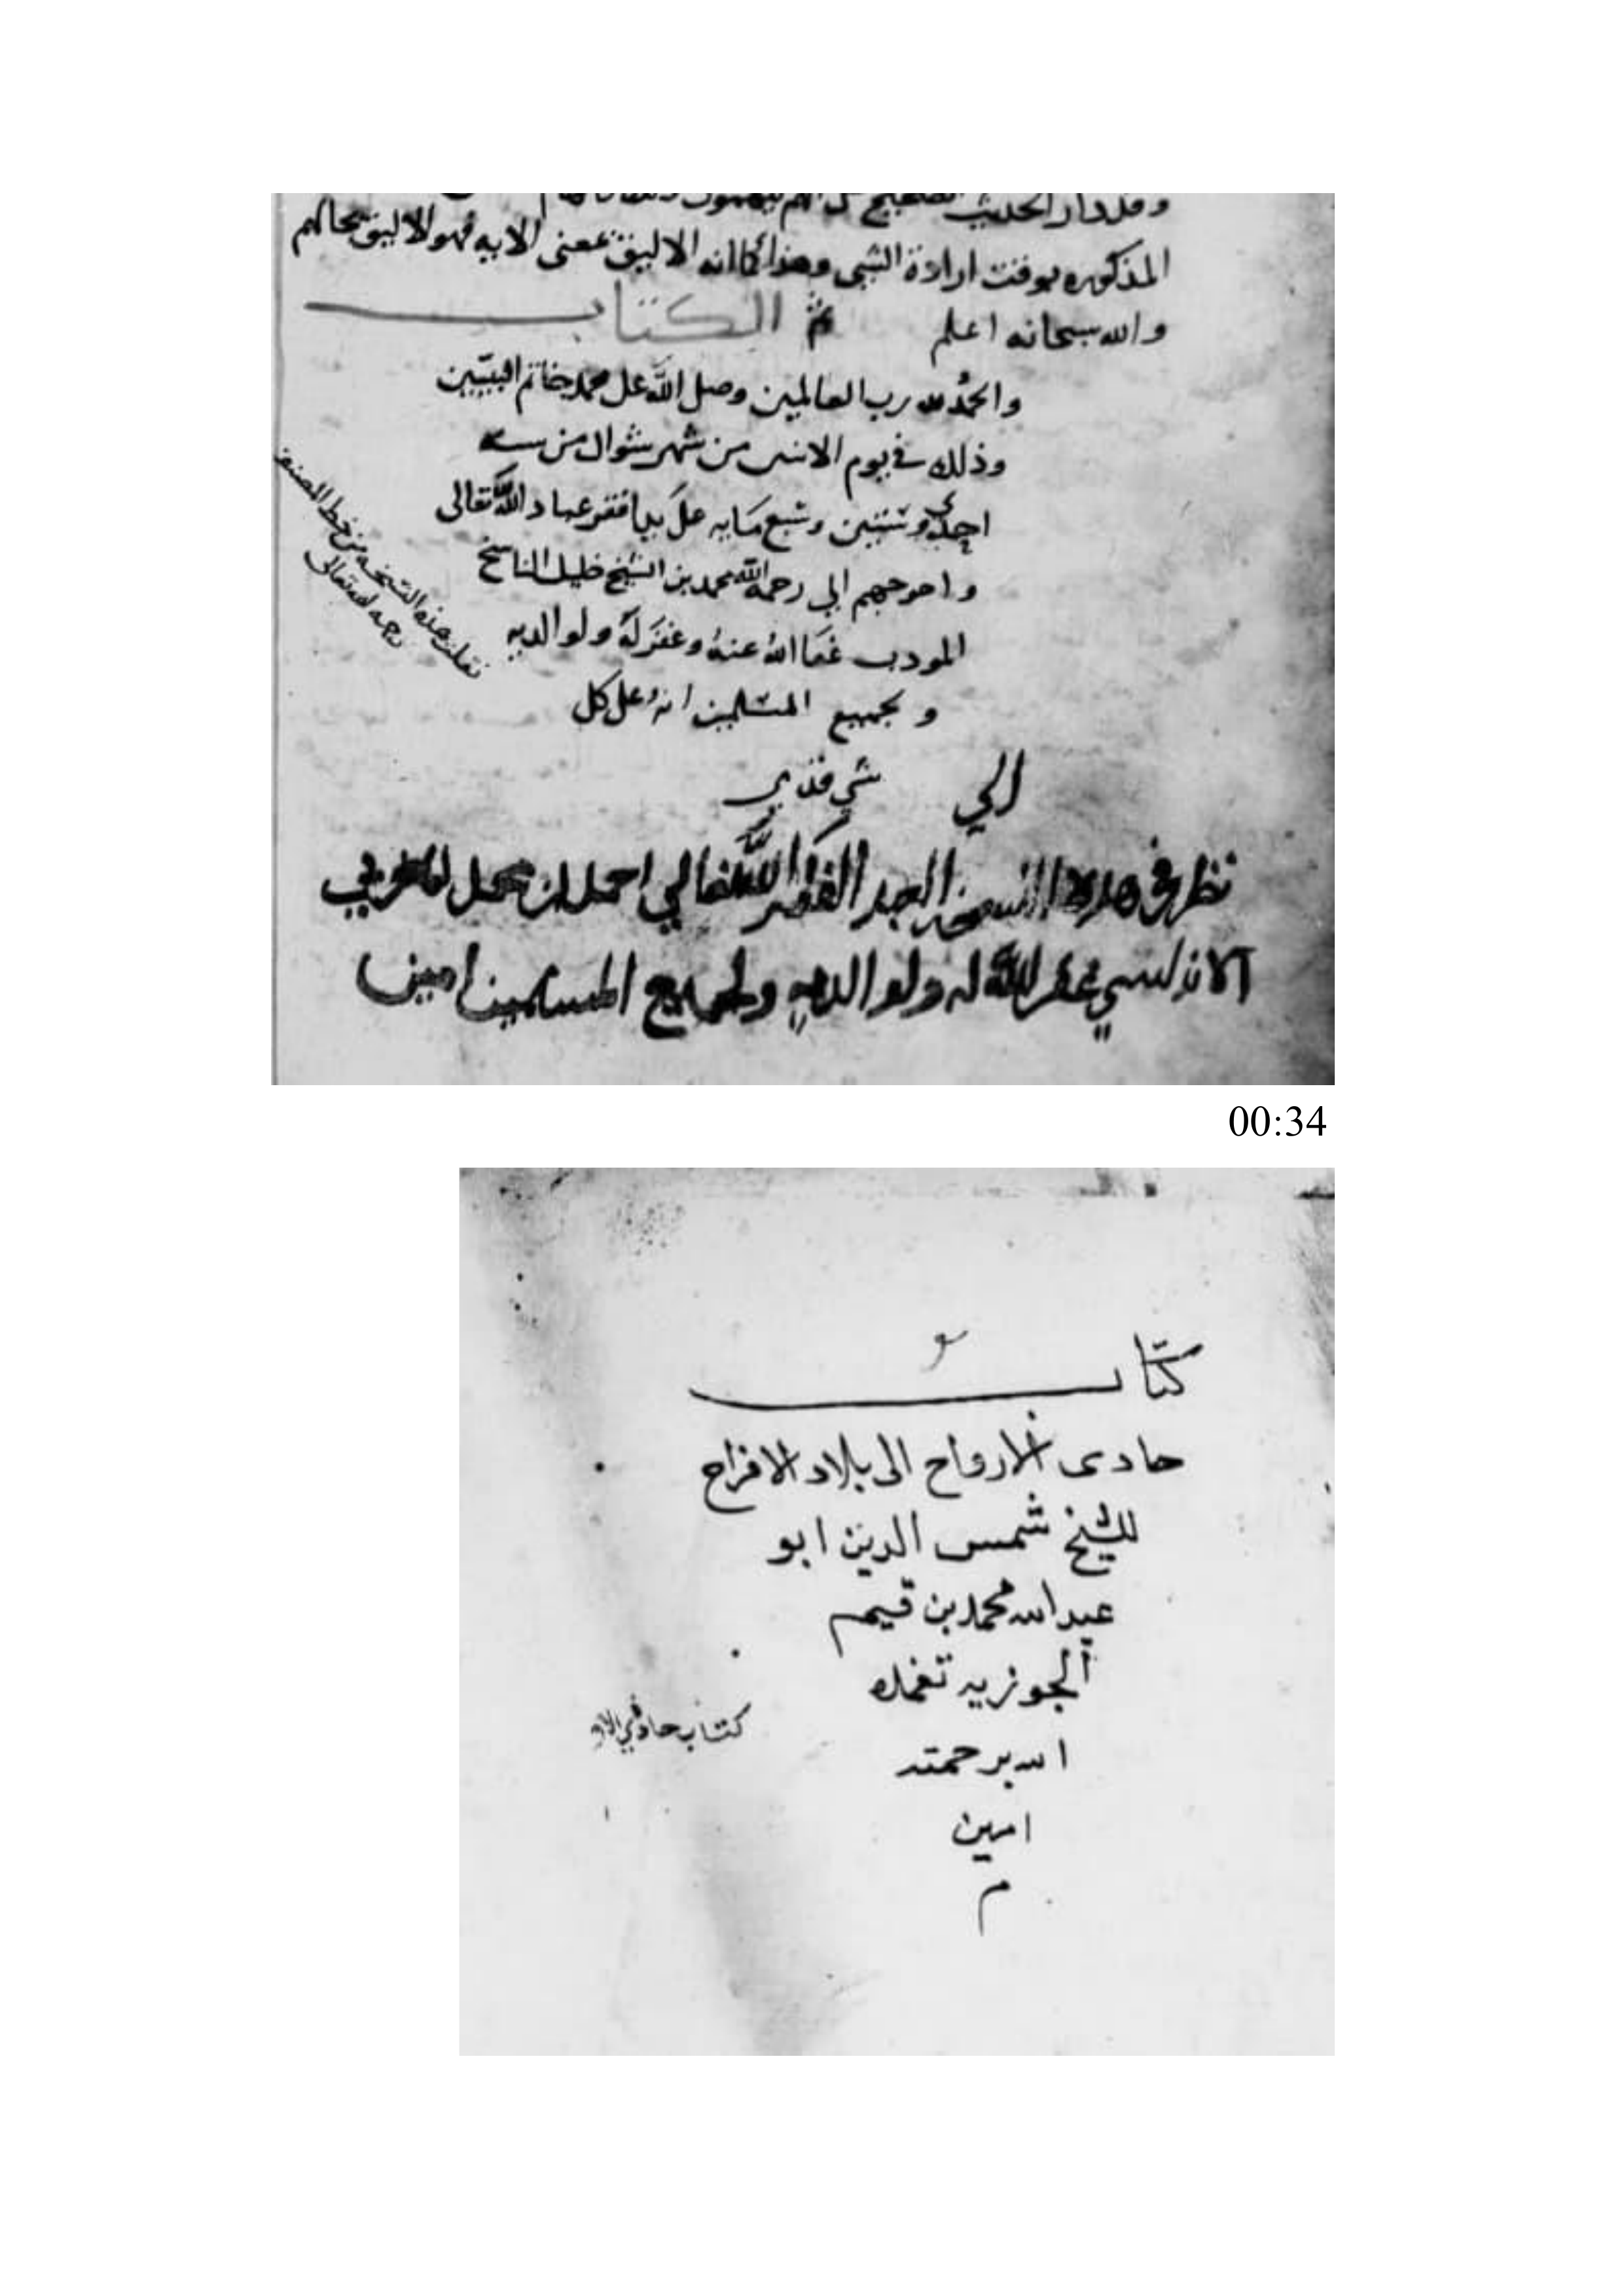 المذكوره بوقت ارادة النبى وهذا كما انه الاليق بمعنى الايه فهو الاليق بحالهم
والله سبحانه اعلم تم الكتاب
والحمد لله رب العالمين وصلى الله على محمد خاتم النبيين
وذلك في يوم الاثنين من شهر شوال من سنه
احدى وستين وسبع مايه على يد افقر عباد الله تعالى
واحوجهم الي رحمة الله محمد بن الشيخ خليل الناسخ
المودب عفا الله عنه وغفر له ولوالديه
ولجميع المسلمين انه على كل
شي قدير
الي
نقلت هذه النسخه من خط المصنف
رحمه الله تعالى
نظر في هده النسخه العبد الفقير الله تعالي احمد ابن محمد المغربي
الاندلسي غفر الله له ولوالديه ولجميع المسلمين امين
00:34
كتاب
حادى الارواح الى بلاد الافراح
للشيخ شمس الدين ابو
عبد الله محمد بن قيم
الجوزيه تغمده
الله برحمته
امين
م
كتاب حادي الار